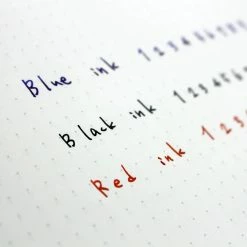 Blue ink 1 2 3 4 5 6
Black ink 1 2 3 4 5
Red ink 1 2 3